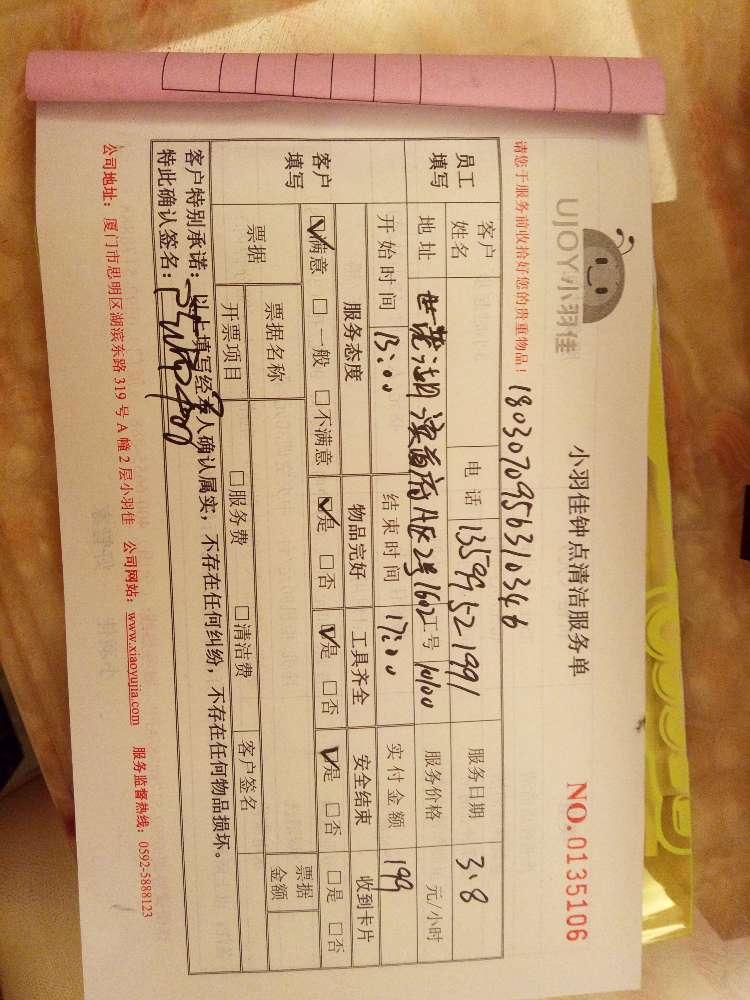 UJOY小羽佳
小羽佳钟点清洁服务单
NO.0135106
请您于服务前收拾好您的贵重物品!
1803070956310346
员工填写
客户姓名 电话 13599521991 服务日期 3.8
地址 世茂湖滨首府A区2号1602 工号 10100 服务价格 元/小时
开始时间 13:00 结束时间 17:00 实付金额 199
客户填写
服务态度 物品完好 工具齐全 安全结束 收到卡片
☑满意 □一般 □不满意 ☑是 □否 ☑是 □否 ☑是 □否 □是 □否
票据 票据名称 票据金额
开票项目 □服务费 □清洁费 客户签名
客户特别承诺:以上填写经本人确认属实,不存在任何纠纷,不存在任何物品损坏。
特此确认签名:
公司地址:厦门市思明区湖滨东路319号A幢2层小羽佳 公司网站:www.xiaoyujia.com 服务监督热线:0592-5888123